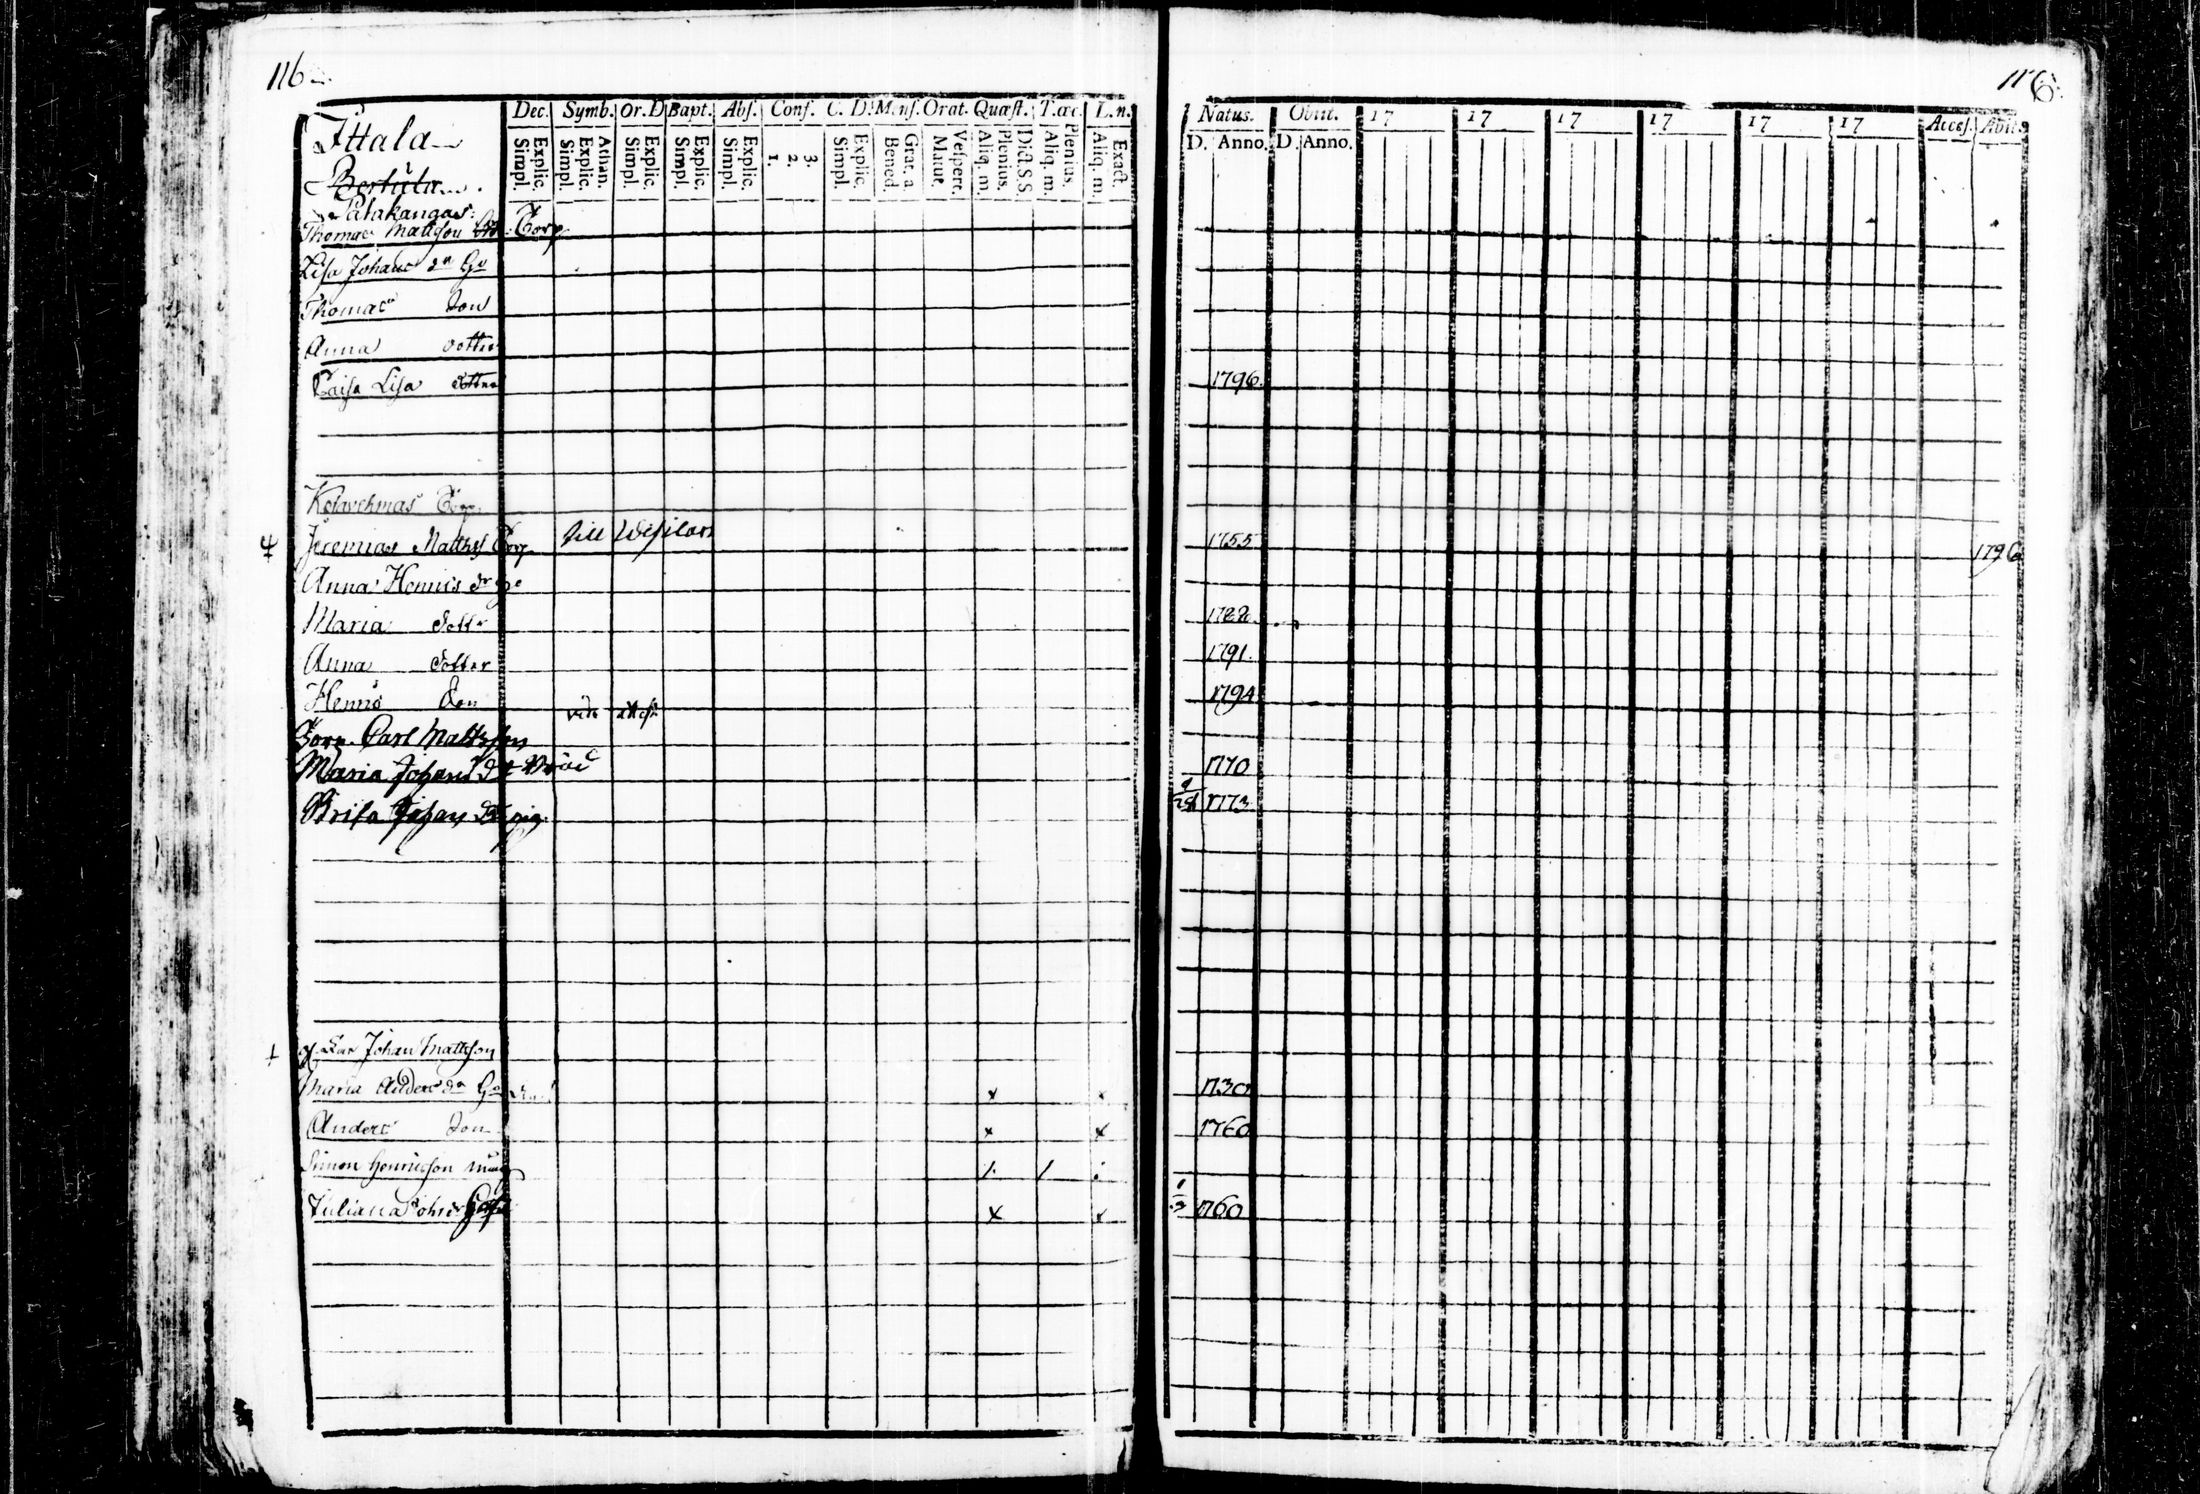 116
116
Dec. Symb. Or. D Bapt. Abs. Conf. C. D. Mens. Orat. Quæst. T. œc. L. n.
Explic. Simpl. Athan. Explic. Simpl. Explic. Simpl. Explic. Simpl. Explic. Simpl. 3. 2. 1. Explic. Simpl. Grat. a. Bened. Vespert. Matut. Dict. S. S. Plenius. Aliq. m. Plenius. Aliq. m. Exact. Aliq. m.
Natus. Obiit. 17 17 17 17 17 17 Acces. Abiit.
D. Anno. D. Anno.
Ittala
Bertula
Palakangas
Thomas Mattson Torp
Lisa Johans dr
Thomas Son
Anna dotter
Caisa Lisa dotter 1796.
Jeremias Matths Torp till 1755 1796
Anna Henrics dr
Maria dottr
Anna dotter 1791.
Henric Son 1794
vide attest
Torp. Carl Mattsson
Maria Johans dr 1770
Brita Johans dr pig. 1773
Johan Mattson
Maria Anders dr x 1730
Anders Son x x 1760
Simon Henricson
Juliana x x 1760